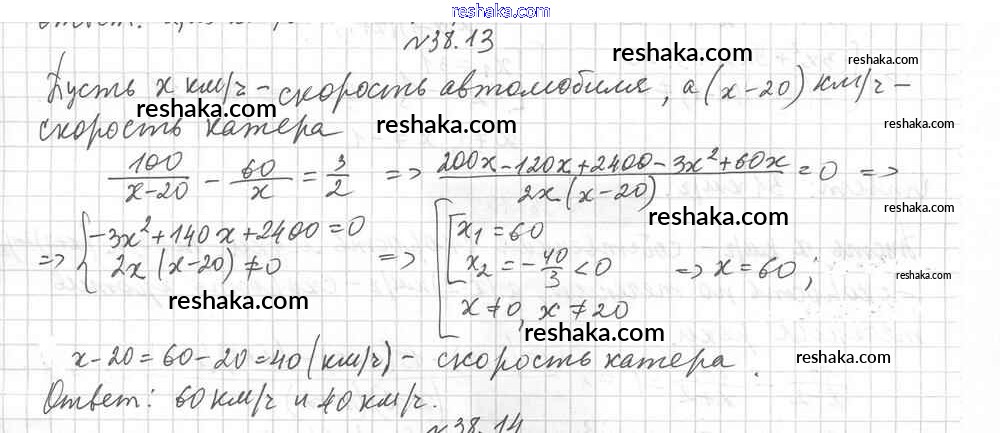 reshaka.com
№38.13
reshaka.com
Пусть x км/ч - скорость автомобиля, а (x-20) км/ч -
reshaka.com
скорость катера
reshaka.com
reshaka.com
100/(x-20) - 60/x = 3/2 => (200x-120x+2400-3x²+60x)/(2x(x-20)) = 0 =>
reshaka.com
reshaka.com
=> { -3x²+140x+2400=0
2x(x-20)≠0 => [ [ x₁=60
x₂=-40/3<0
x≠0, x≠20 => x=60;
reshaka.com
reshaka.com
reshaka.com
x-20=60-20=40 (км/ч) - скорость катера.
reshaka.com
Ответ: 60 км/ч и 40 км/ч.
reshaka.com
№38.14